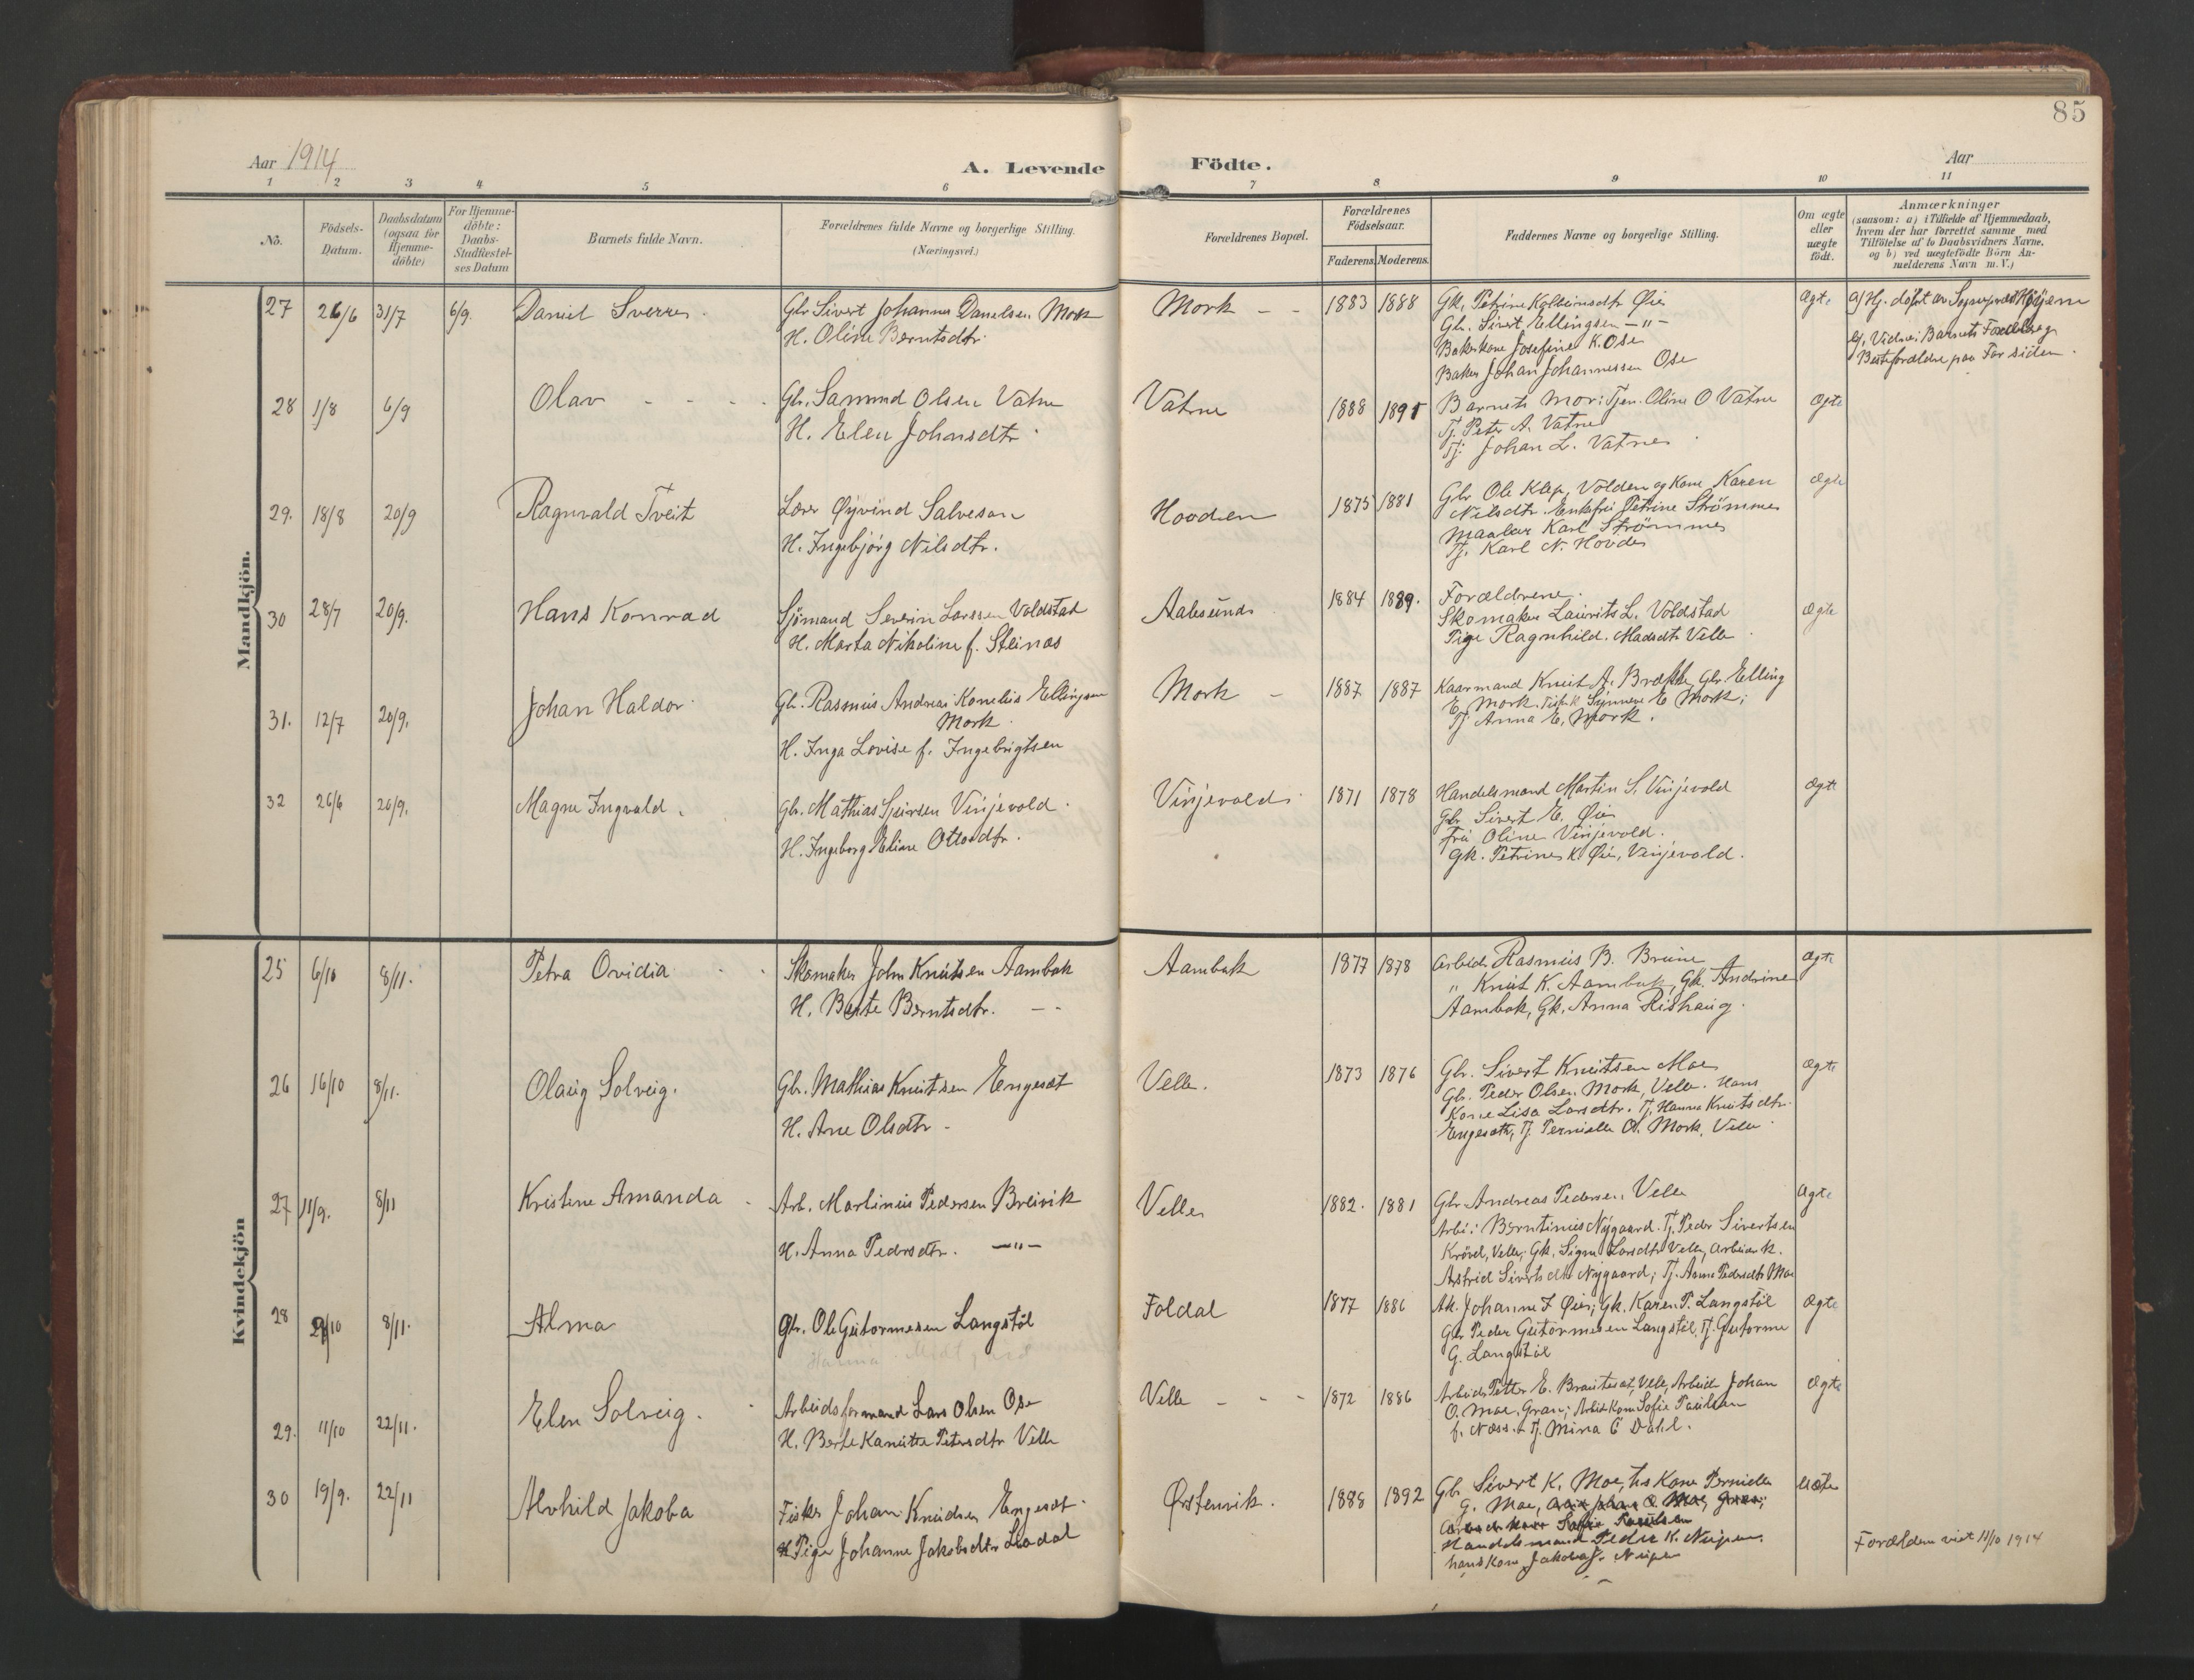 85
Aar 1914
A. Levende Födte.
Aar
1 2 3 4 5 6 7 8 9 10 11
No.
Födsels-Datum.
Daabsdatum (ogsaa for Hjemme-döbte)
For Hjemme-döbte: Daabs-Stadfæstel-ses Datum
Barnets fulde Navn.
Forældrenes fulde Navne og borgerlige Stilling.
(Næringsvei.)
Forældrenes Bopæl.
Forældrenes Födselsaar.
Faderens. Moderens.
Faddernes Navne og borgerlige Stilling.
Om ægte eller uægte födt.
Anmærkninger
(saasom: a) i Tilfælde af Hjemmedaab, hvem der har forrettet samme med Tilföielse af to Daabsvidners Navne, og b) ved uægtefödte Börn An-melderens Navn m. V.)
Mandkjön.
27 26/6 31/7 6/9. Daniel Sverre. Gbr Sivert Johannes Danielsen Mork Mork - - 1883 1888 Gk. Petrine Kolbeinsdtr Øie Ægte a) Hj. døbt av Sogneprest Høyem
H. Oline Berntsdtr. Gbr. Sivert Ellingsen -"-
Bakerkone Josefine K. Ose b/. Vidner: Barnets Forældre og
Baker Johan Johannessen Ose Besteforældre paa Far siden.
28 1/8 6/9 Olav - - - Gbr. Samund Olsen Vatne Vatne 1888 1895 Barnets Mor: Tjen. Oline O Vatne Ægte
H. Elen Johnsdtr. Tj. Peter A. Vatne
Tj. Johan L. Vatne
29. 18/8 20/9 Ragnvald Tveit Lærer Øyvind Salveson Hovden 1875 1881 Gbr Ole Klep, Volden og Kone Karen Ægte
H. Ingebjórg Nilsdtr. Nilsdtr. Enkefru Petrine Strömmen
Maaler Karl Strömmen
Tj. Karl N. Hovden
30 28/7 20/9. Hans Konrad Sjömand Severin Larssen Voldstad Aalesund 1884 1889. Forældrene. Ægte
H. Marta Nikoline f. Steinæs Skomaker Laurits L. Voldstad
Pige Ragnhild. Madsdtr Velle
31. 12/7 20/9. Johan Haldor Gbr. Rasmus Andreas Kornelius Ellingsen Mork - 1887 1887 Kaarmand Knut A. Brække, Gbr. Elling
Mork. E. Mork. Synneve E Mork;
H. Inga Lovise f. Ingebrigtsen Tj. Anna E, Mork.
32 26/6 20/9. Magne Ingvald. Gbr. Mathias Sjursen Vinjevold. Vinjevold 1871 1878 Handelsmand Martin S. Vinjevold Ægte
H. Ingeborg Eline Ottosdtr. Gbr Sivert E. Øie
Fru Oline Vinjevold.
Gk. Petrine K. Øie, Vinjevold.
Kvindekjön
25 6/10 8/11. Petra Ovidia Skomaker John Knutsen Aambak Aambak 1877 1878 Arbeid. Rasmus B. Brune Ægte
H. Berte Berntsdtr. - - " Knut K. Aambak, Gk. Andrine
Aambak, Gk. Anna Rishaug.
26 16/10 8/11. Olaug Solveig. Gbr. Mathias Knutsen Engeset Velle. 1873 1876 Gbr. Sivert Knutsen Moe Ægte
H. Ane Olsdtr - Gbr. Peder Olsen Mork, Velle. Hans
Kone Lisa Larsdtr. Tj. Hanna Knutsdtr.
Engeseth, Tj. Pernille O. Mork, Velle
27 11/9. 8/11 Kristine Amanda Arb. Martinus Pedersen Breivik Velle 1882. 1881 Gbr Andreas Pedersen, Velle Ægte
H. Anna Pedersdtr. -"- Arbei: Berntinus Nygaard. Tj. Peder Sivertsen
Krövel, Velle; Gk. Signe Larsdtr Velle, Arbeider k.
Astrid Sivertsdtr Nygaard; Tj. Anne Pedersdtr Moe
28 /10 8/11. Alma Gbr. Ole Guttormesen Langstöl Foldal 1877 1886 Johanne I Øie; Gk. Karen P. Langstöl Ægte
Hanna Gbr Peder Guttormesen Langstöl, Tj. Guttorme
G. Langstöl
29. 11/10 22/11. Elen Solveig. Arbeidsformand Lars Olsen Ose Velle - - 1872 1886 Arbeid. Petter E. Brautaset, Velle, Arbeid Johan Ægte
H. Berte Kanutte Petersdtr Velle O. Moe, Gran; Arbeid Kone Sofie Paulsen
f. Næss. Tj. Mina C Dahl.
30 19/9. 22/11 Alvhild Jakoba Fisker Johan Knudsen Engeset. Ørstenvik. 1888 1892 Gbr Sivert K. Moe, hs Kone Pernille Uægte
Pige Johanne Jakobsdtr Ladal G. Moe,
Handelsmand Peder K. Nupen.
hans Kone Jakoba J. Nupen Forældrene viet 11/10 1914